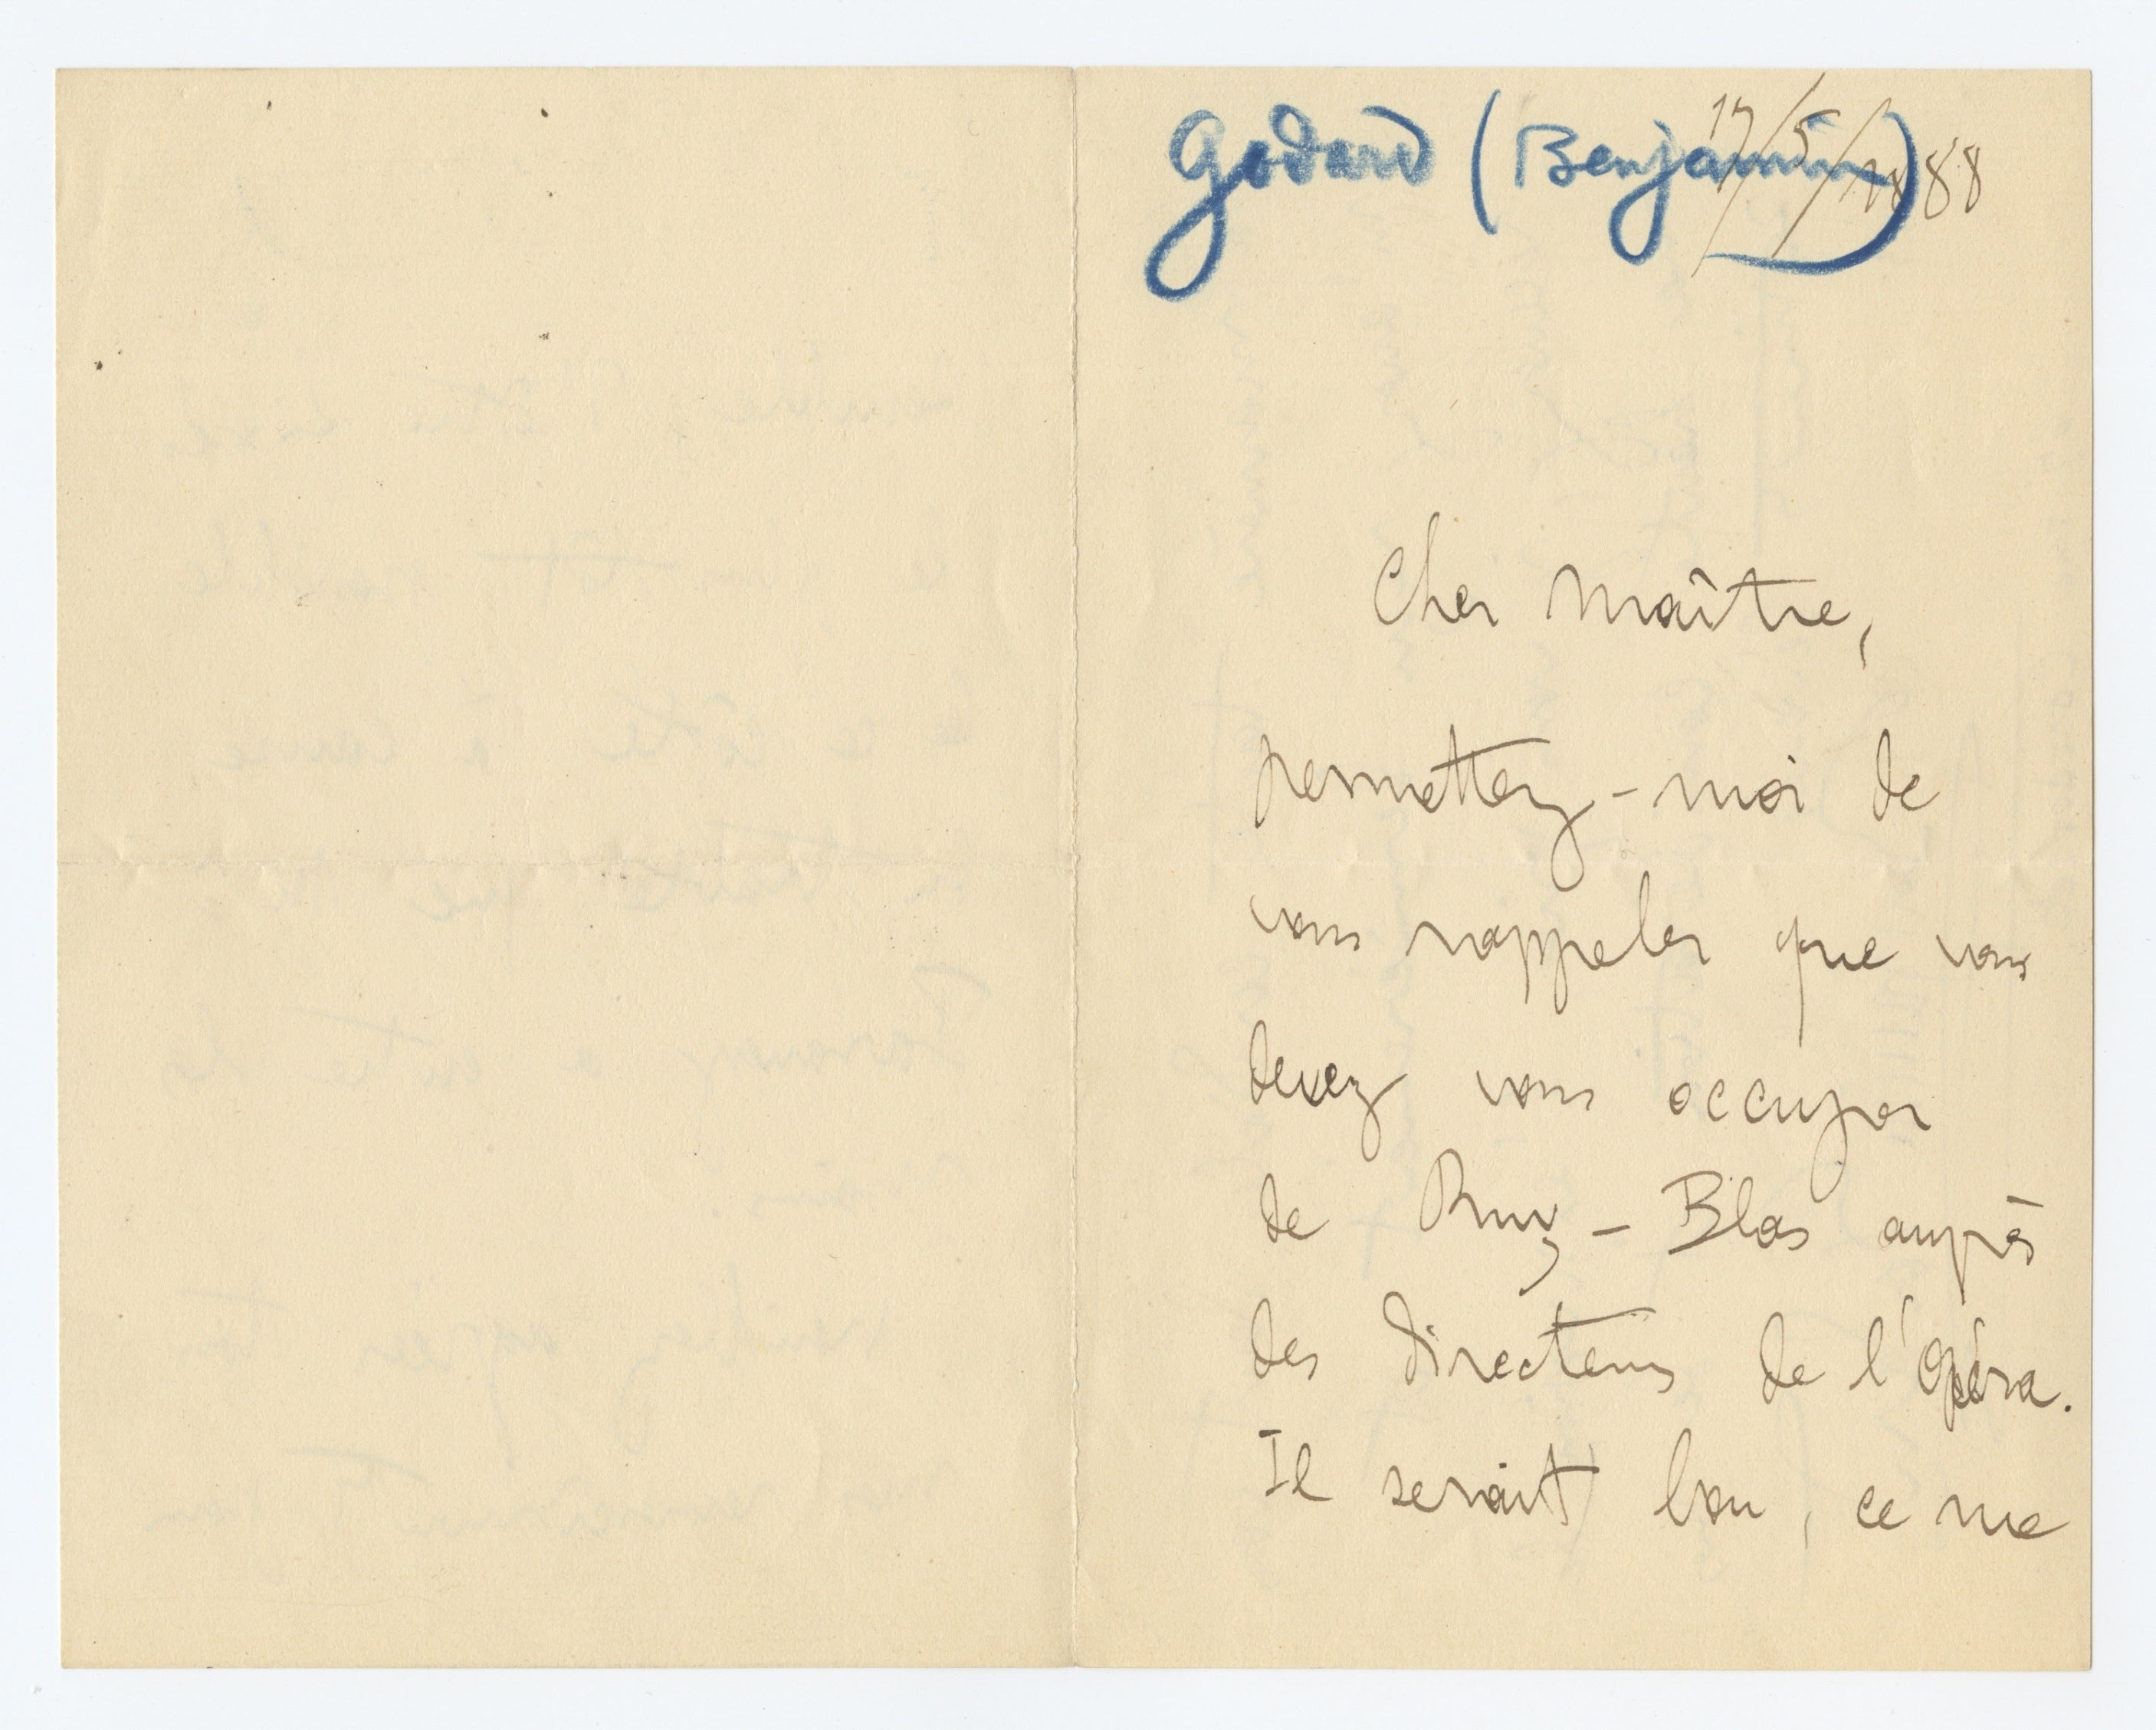 Godard (Benjamin)
17/5/1888
Cher Maître,
permettez-moi de
vous rappeler que vous
devez vous occuper
de Ruy-Blas auprès
des directeurs de l'Opéra.
Il serait bon, ce me